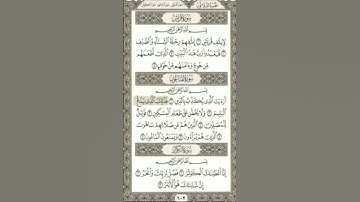 سُورَةُ قُرَيْشٍ
بِسْمِ اللَّهِ الرَّحْمَٰنِ الرَّحِيمِ
لِإِيلَٰفِ قُرَيْشٍ ١ إِۦلَٰفِهِمْ رِحْلَةَ ٱلشِّتَآءِ وَٱلصَّيْفِ
٢ فَلْيَعْبُدُوا۟ رَبَّ هَٰذَا ٱلْبَيْتِ ٣ ٱلَّذِىٓ أَطْعَمَهُم
مِّن جُوعٍ وَءَامَنَهُم مِّنْ خَوْفٍۭ ٤
سُورَةُ المَاعُونِ
بِسْمِ اللَّهِ الرَّحْمَٰنِ الرَّحِيمِ
أَرَءَيْتَ ٱلَّذِى يُكَذِّبُ بِٱلدِّينِ ١ فَذَٰلِكَ ٱلَّذِى يَدُعُّ
ٱلْيَتِيمَ ٢ وَلَا يَحُضُّ عَلَىٰ طَعَامِ ٱلْمِسْكِينِ ٣ فَوَيْلٌ
لِّلْمُصَلِّينَ ٤ ٱلَّذِينَ هُمْ عَن صَلَاتِهِمْ سَاهُونَ
٥ ٱلَّذِينَ هُمْ يُرَآءُونَ ٦ وَيَمْنَعُونَ ٱلْمَاعُونَ ٧
سُورَةُ الكَوْثَرِ
بِسْمِ اللَّهِ الرَّحْمَٰنِ الرَّحِيمِ
إِنَّآ أَعْطَيْنَٰكَ ٱلْكَوْثَرَ ١ فَصَلِّ لِرَبِّكَ وَٱنْحَرْ ٢
إِنَّ شَانِئَكَ هُوَ ٱلْأَبْتَرُ ٣
٦٠٢